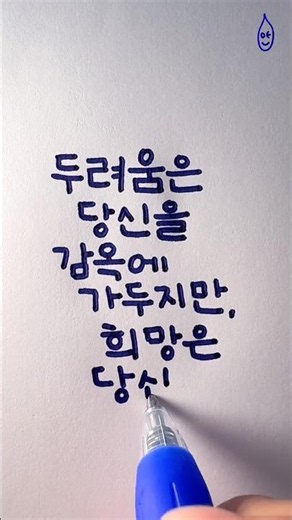 두려움은
당신을
감옥에
가두지만,
희망은
당신